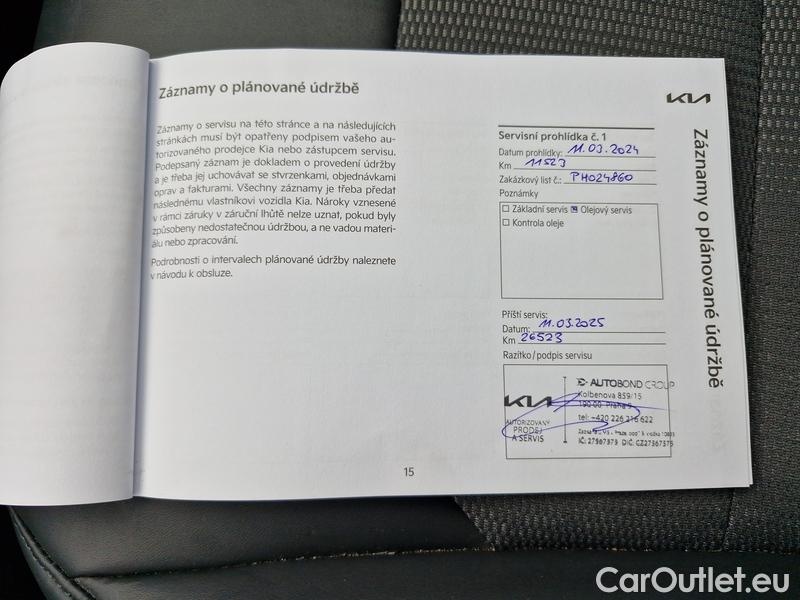 Záznamy o plánované údržbě
Záznamy o servisu na této stránce a na následujících
stránkách musí být opatřeny podpisem vašeho au-
torizovaného prodejce Kia nebo zástupcem servisu.
Podepsaný záznam je dokladem o provedení údržby
a je třeba jej uchovávat se stvrzenkami, objednávkami
oprav a fakturami. Všechny záznamy je třeba předat
následnému vlastníkovi vozidla Kia. Nároky vznesené
v rámci záruky v záruční lhůtě nelze uznat, pokud byly
způsobeny nedostatečnou údržbou, a ne vadou materi-
álu nebo zpracování.
Podrobnosti o intervalech plánované údržby naleznete
v návodu k obsluze.
15
KIA
Servisní prohlídka č. 1
Datum prohlídky: 11.03.2024
Km 11523
Zakázkový list č.: PH024860
Poznámky
Základní servis Olejový servis
Kontrola oleje
Příští servis:
Datum: 11.03.2025
Km 26523
Razítko/podpis servisu
KIA
AUTORIZOVANÝ
PRODEJ
A SERVIS
AUTOBOND GROUP
Kolbenova 859/15
190 00 Praha 9
tel: +420 226 216 622
IČ: 27567575 DIČ: CZ27567575
Záznamy o plánované údržbě
CarOutlet.eu